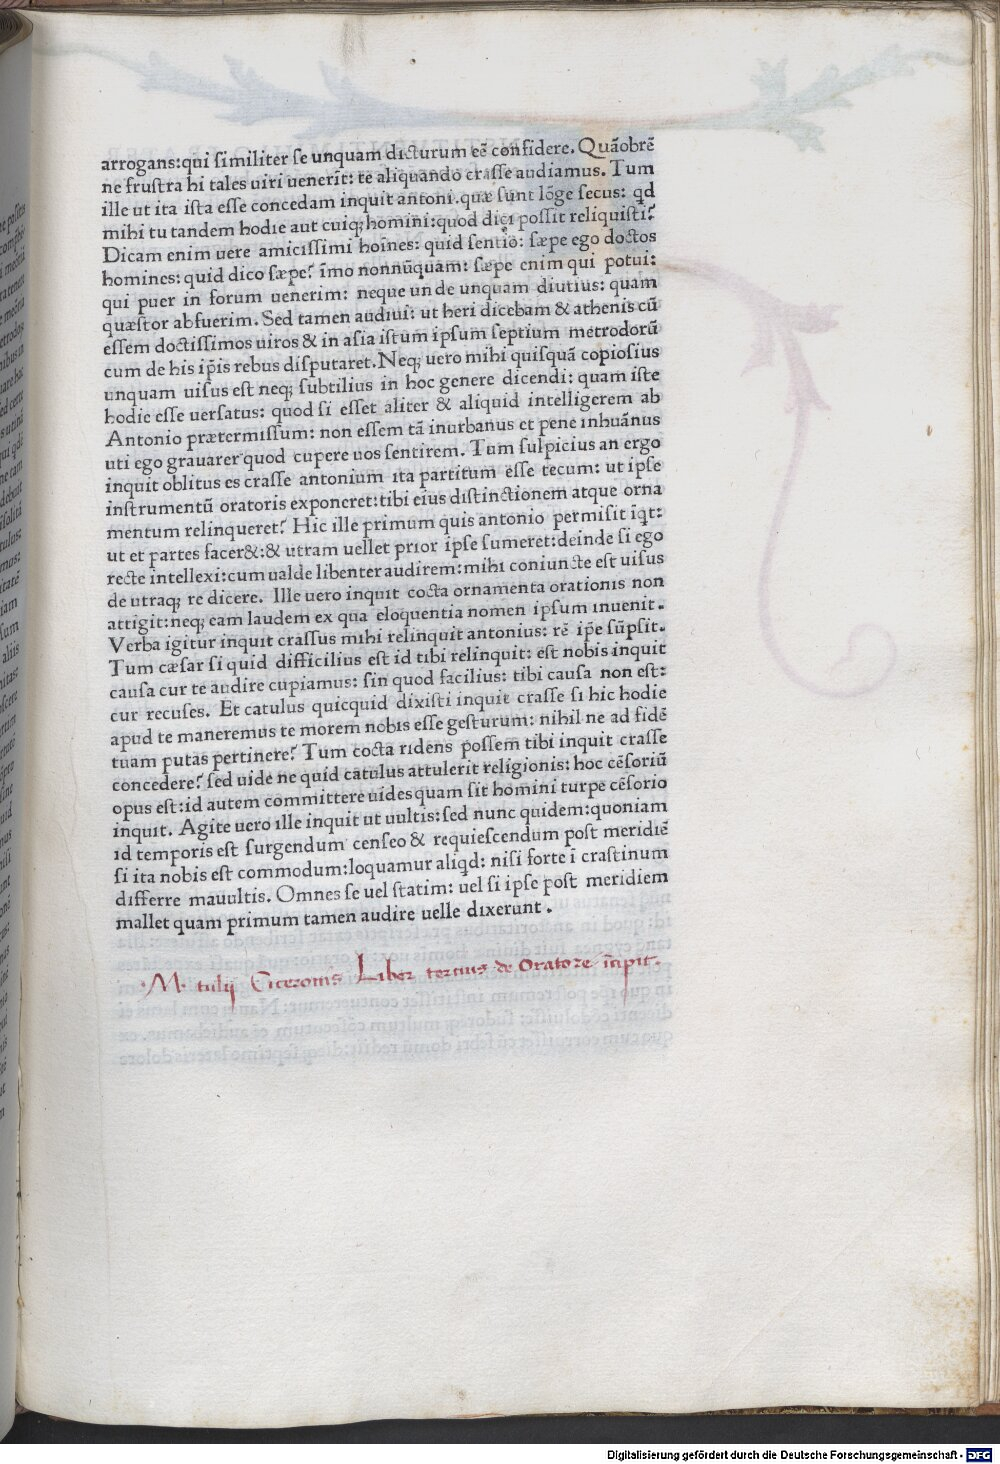 arrogans:qui similiter se unquam dicturum eē confidere. Quāobrē
ne frustra hi tales uiri uenerīt: te aliquando crasse audiamus. Tum
ille ut ita ista esse concedam inquit antoni.quæ sunt lōge secus: qd
mihi tu tandem hodie aut cuiq; homini:quod dici possit reliquisti?
Dicam enim uere amicissimi hoīnes: quid sentio: sæpe ego doctos
homines: quid dico sæpe? īmo nonnūquam: sæpe enim qui potui:
qui puer in forum uenerim: neque unde unquam diutius: quam
quæstor abfuerim. Sed tamen audiui: ut heri dicebam & athenis cū
essem doctissimos uiros & in asia istum ipsum septium metrodorū
cum de his ip̄is rebus disputaret. Neq; uero mihi quisquā copiosius
unquam uisus est neq; subtilius in hoc genere dicendi: quam iste
hodie esse uersatus: quod si esset aliter & aliquid intelligerem ab
Antonio prætermissum: non essem tā inurbanus et pene inhuānus
uti ego grauarer quod cupere uos sentirem. Tum sulpicius an ergo
inquit oblitus es crasse antonium ita partitum esse tecum: ut ipse
instrumentū oratoris exponeret:tibi eius distinctionem atque orna
mentum relinqueret? Hic ille primum quis antonio permisit iqt:
ut et partes facer&:& utram uellet prior ipse sumeret:deinde si ego
recte intellexi:cum ualde libenter audirem:mihi coniuncte est uisus
de utraq; re dicere. Ille uero inquit cocta ornamenta orationis non
attigit:neq; eam laudem ex qua eloquentia nomen ipsum inuenit.
Verba igitur inquit crassus mihi relinquit antonius: rē ip̄e sūpsit.
Tum cæsar si quid difficilius est id tibi relinquit: est nobis inquit
causa cur te audire cupiamus: sin quod facilius: tibi causa non est:
cur recuses. Et catulus quicquid dixisti inquit crasse si hic hodie
apud te maneremus te morem nobis esse gesturum: nihil ne ad fidē
tuam putas pertinere? Tum cocta ridens possem tibi inquit crasse
concedere? sed uide ne quid catulus attulerit religionis: hoc cēsoriū
opus est:id autem committere uides quam sit homini turpe cēsorio
inquit. Agite uero ille inquit ut uultis:sed nunc quidem:quoniam
id temporis est surgendum censeo & requiescendum post meridiē
si ita nobis est commodum:loquamur aliqd: nisi forte ī crastinum
differre mauultis. Omnes se uel statim: uel si ipse post meridiem
mallet quam primum tamen audire uelle dixerunt.
·M· tulij Ciceronis Liber tercius de Oratore īcipit.
Digitalisierung gefördert durch die Deutsche Forschungsgemeinschaft - DFG